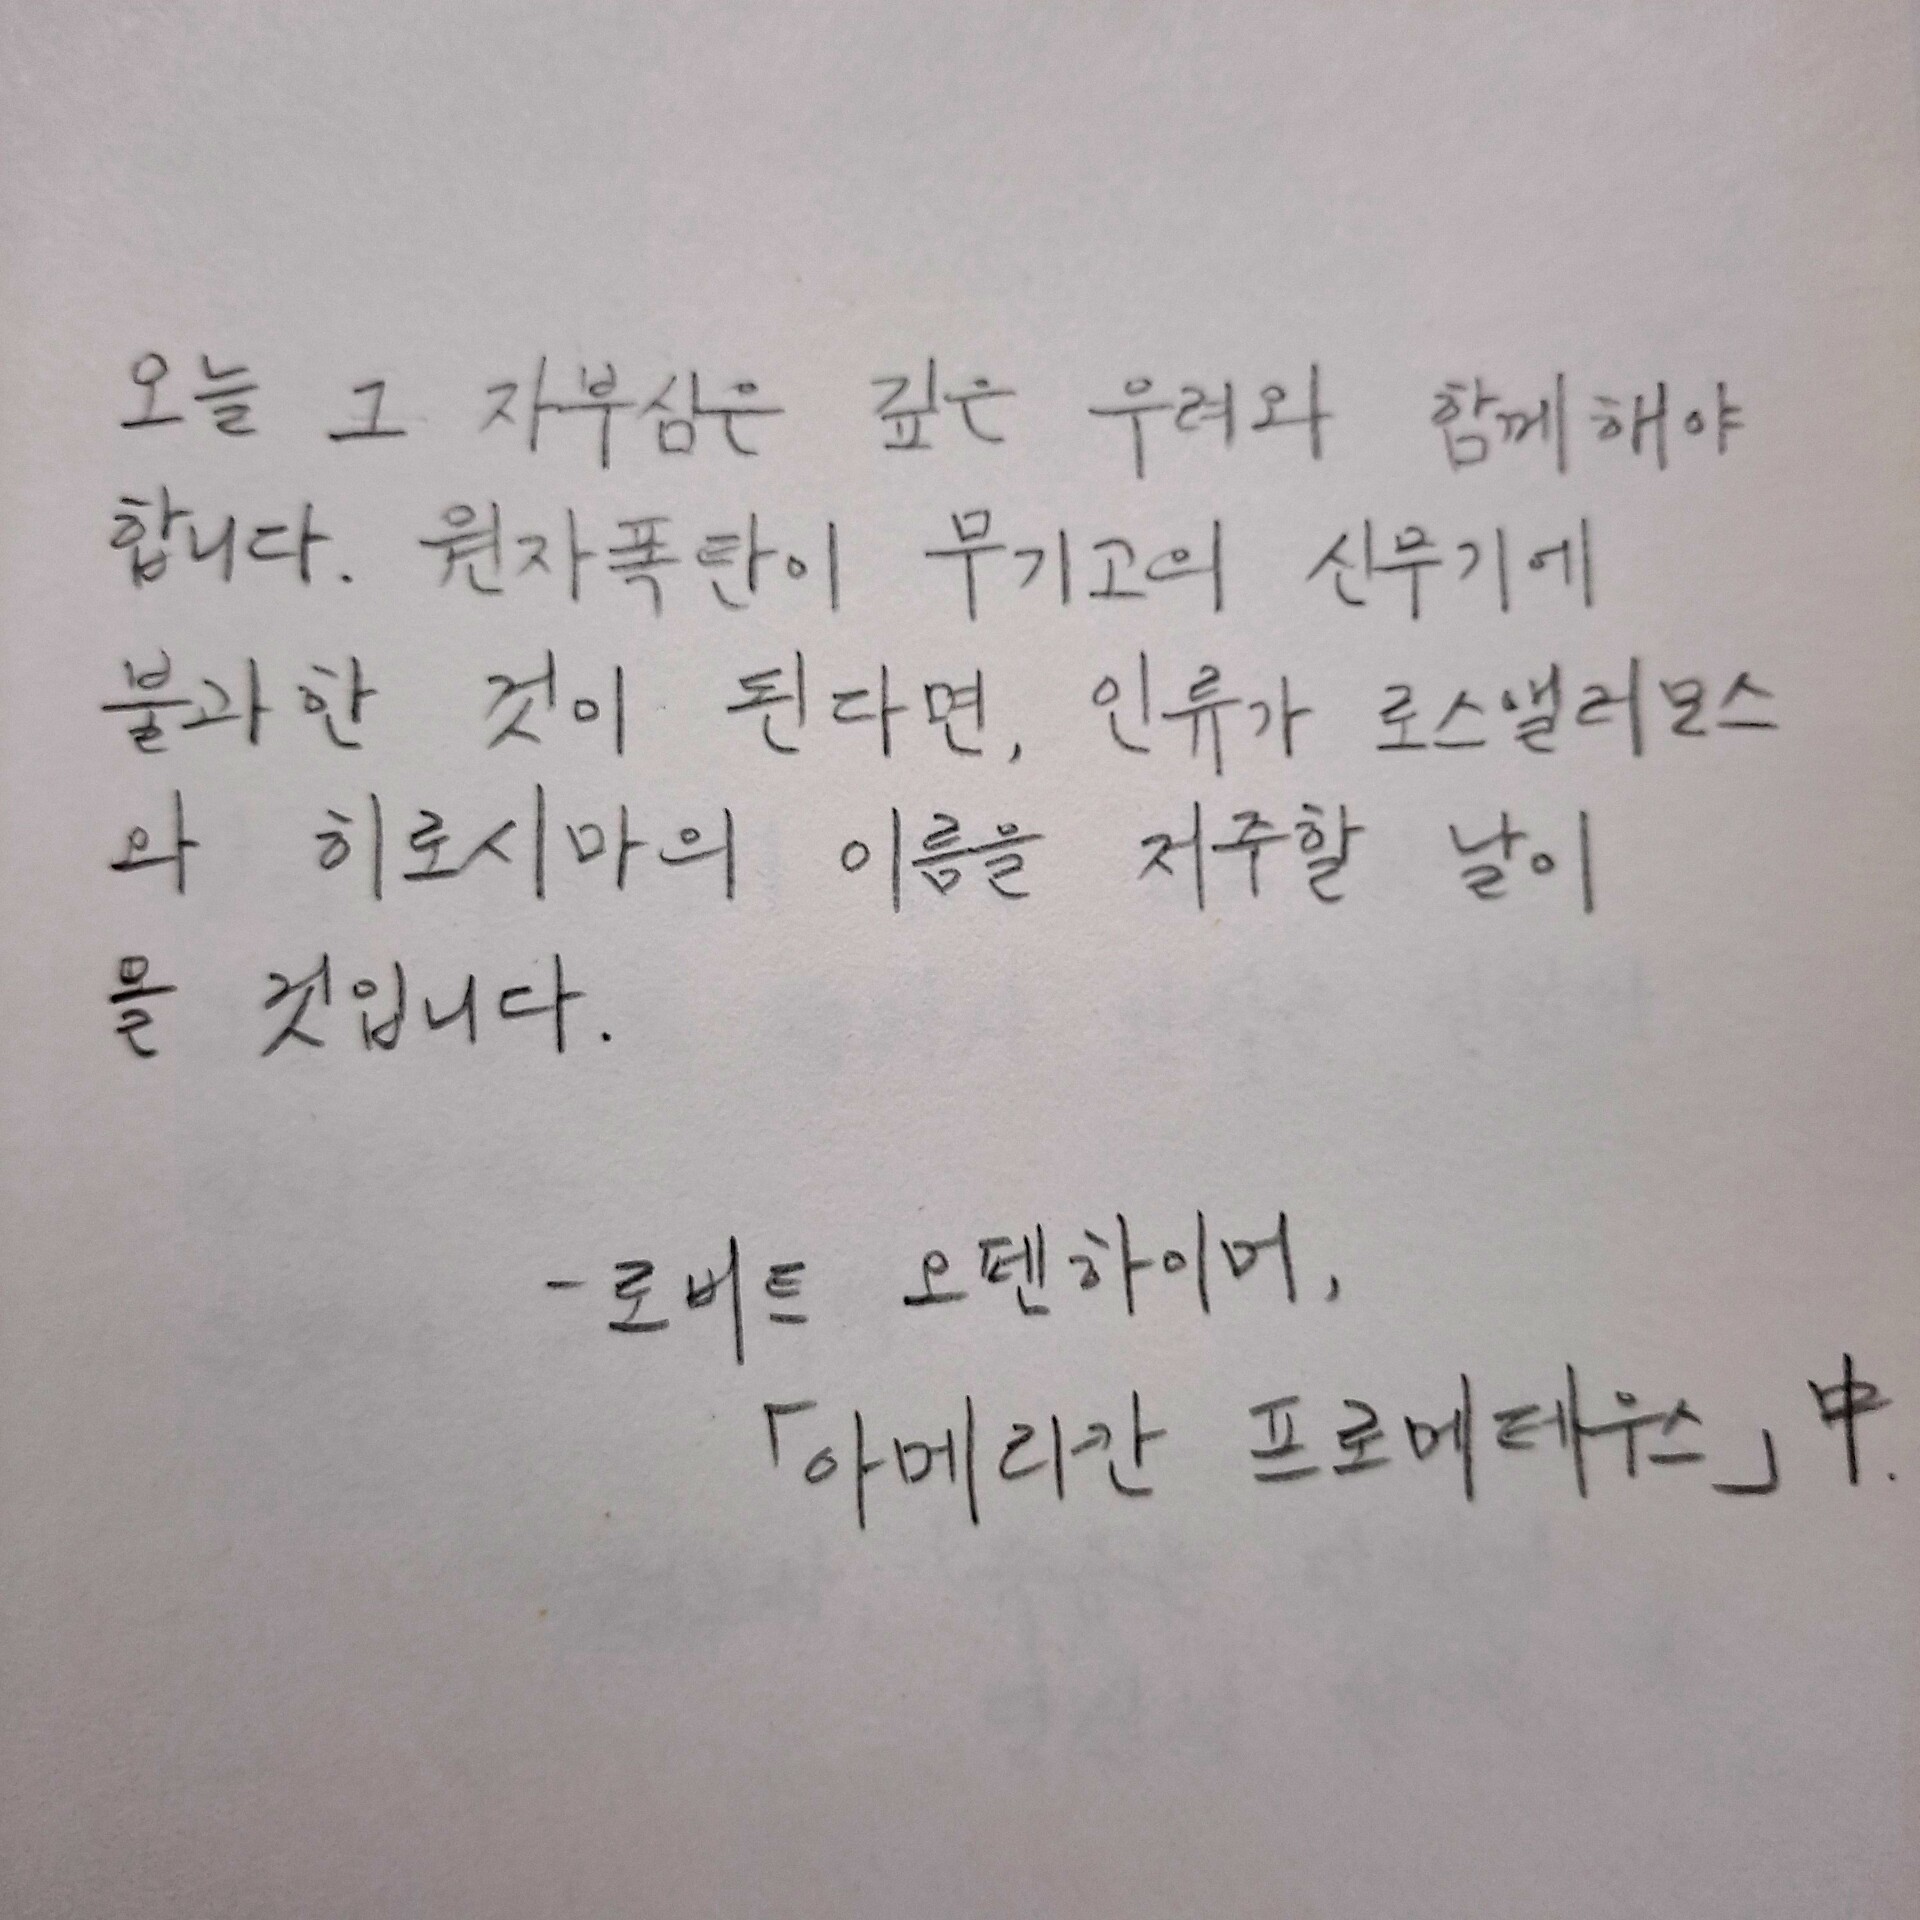 오늘 그 자부심은 깊은 우려와 함께해야
합니다. 원자폭탄이 무기고의 신무기에
불과한 것이 된다면, 인류가 로스앨러모스
와 히로시마의 이름을 저주할 날이
올 것입니다.
-로버트 오펜하이머,
「아메리칸 프로메테우스」 中.